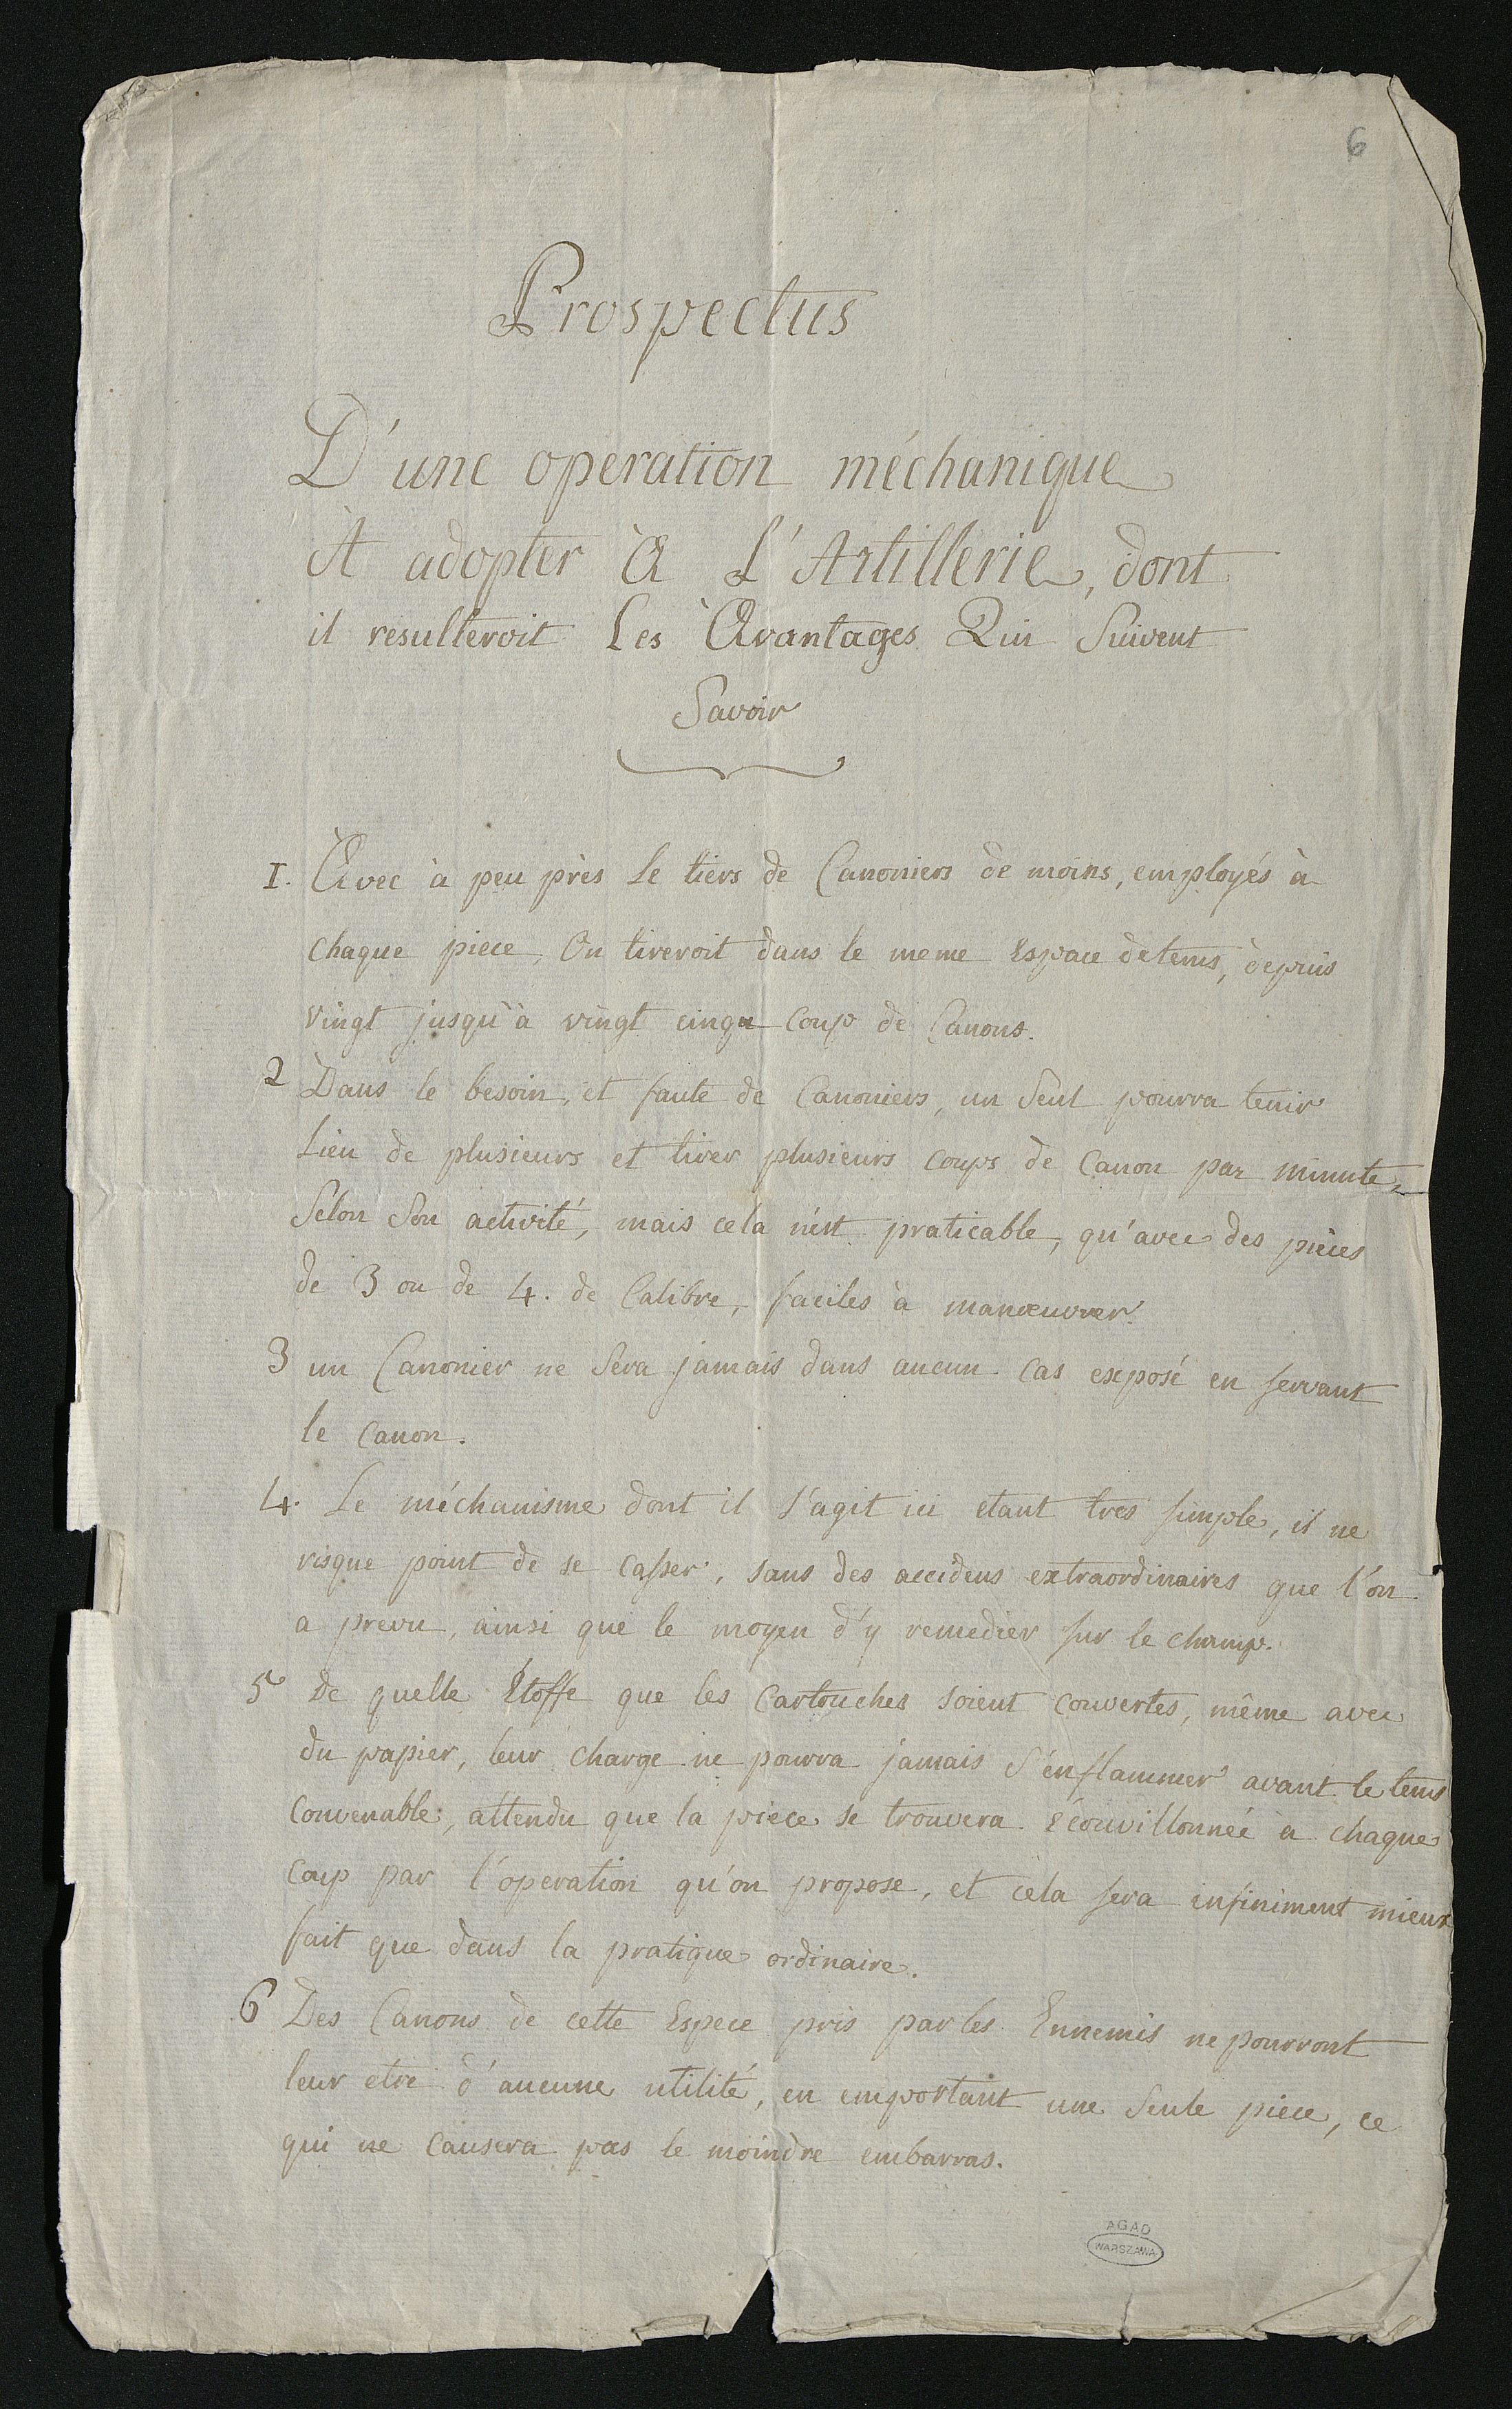 6
Prospectus
D'une operation méchanique
A adopter à L'Artillerie, dont
il resulteroit Les Avantages Qui Suivent
Savoir
1. Avec à peu près le tiers de Canoniers de moins, employés à
chaque piece, On tireroit dans le meme Espace de tems, depuis
vingt jusqu'à vingt cinq coup de Canons.
2 Dans le besoin, et faute de Canoniers, un Seul pourra tenir
Lieu de plusieurs et tirer plusieurs coups de Canon par minute,
Selon Son activité, mais cela n'est praticable, qu'avec des pièces
de 3 ou de 4. de Calibre, faciles à manœuvrer.
3 un Canonier ne Sera jamais dans aucun cas exposé en servant
le Canon.
4. Le méchanisme dont il s'agit ici etant tres simple, il ne
risque point de se casser, sans des accidens extraordinaires que l'on
a prevu, ainsi que le moyen d'y remedier sur le champ.
5 De quelle Etoffe que les Cartouches soient couvertes, même avec
du papier, leur charge ne pourra jamais S'enflammer avant le tems
Convenable, attendu que la piece se trouvera Ecouvillonnée à chaque
Coup par l'operation qu'on propose, et cela sera infiniment mieux
fait que dans la pratique ordinaire.
6 Des Canons de cette Espece pris par les Ennemis ne pourront
leur etre d'aucune utilité, en emportant une Seule piece, ce
qui ne Causera pas le moindre embarras.
AGAD
WARSZAWA